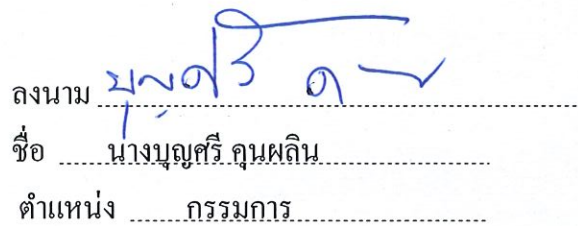 ลงนาม บุญศรี
ชื่อ นางบุญศรี คุนผลิน
ตำแหน่ง กรรมการ